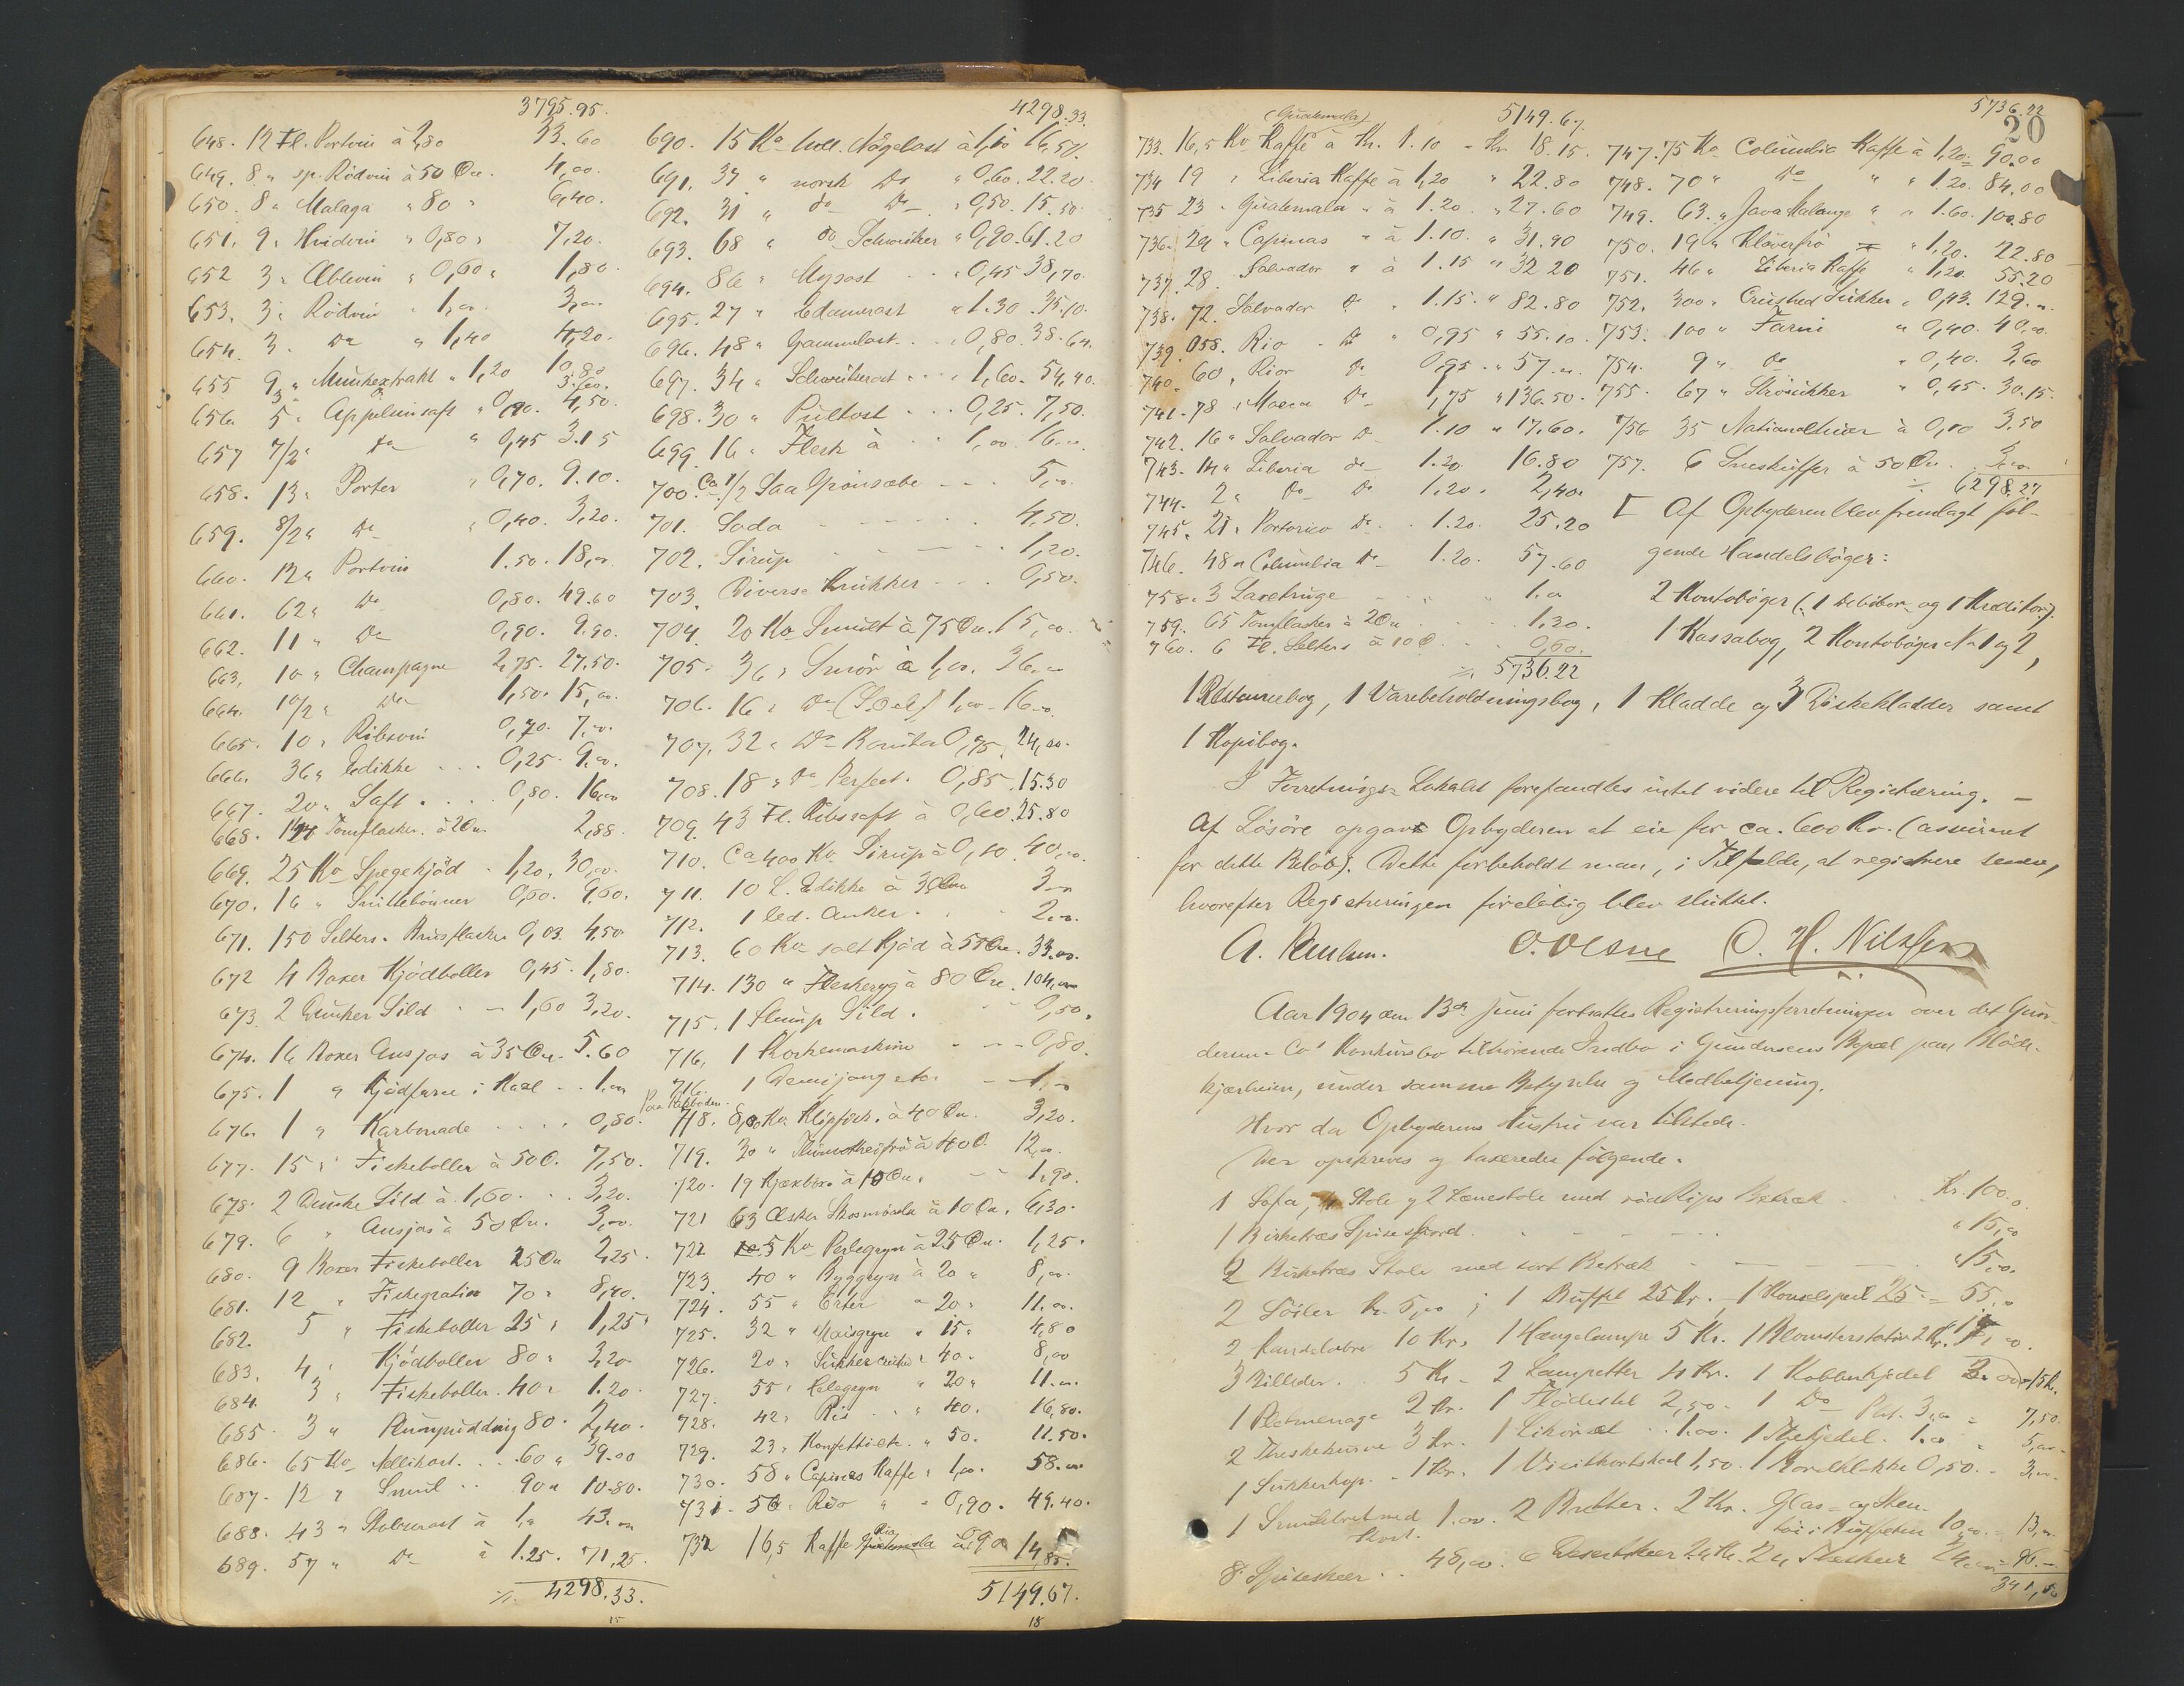 3795.95.
648. 12 Fl. Portvin à 2,80 33.60
649. 8 " sp. Rödvin à 50 Øre. 4,00.
650. 8 " Malaga " 80 " 6,40.
651. 9 " Hvidvin " 0,80 " 7,20.
652 3 " Æblevin " 0,60 " 1,80.
653. 3 " Rödvin " 1,00. 3,00.
654. 3. Do " 1,40 4,20.
655 9 " Munkextrakt " 1,20 10,80
656. 5 " Applsinsaft " 0,90. 4,50.
657 7/2 " Do " 0,45 3.15
658. 13 " Porter " 0,70. 9.10.
659. 8/2 " Do " 0,40. 3,20.
660. 12 " Portvin 1.50. 18,00.
661. 62 " Do 0,80. 49.60
662. 11 " Do 0,90. 9.90.
663. 10 " Champagne 2,75. 27,50.
664. 10/2 " Do 1,50. 15,00.
665. 10 " Ribsvin 0,70. 7,00.
666. 36 " Edikke . . . 0,25. 9.00.
667. 20 " Saft . . . . 0,80. 16,00
668. 144 Tomflasker. à 2 Øre. 2,88.
669. 25 Ko Spegekjöd . 1,20. 30,00.
670. 16 " Snittebönner 0,60. 9,60.
671. 150 Selters. Brusflasker 0,03. 4,50
672 4 Boxer Kjödboller 0,45. 1,80.
673. 2 Dunker Sild . - 1,60 3,20.
674. 16 Boxer Ansjos à 35 Øre. 5.60
675. 1 " Kjödfarce i Kaal . . 1,00
676. 1 " Karbonade . . . . 0,80.
677. 15 " Fiskeboller à 50 Ö. 7,50.
678. 2 Dunke Sild à 1,60. . . 3,20.
679. 6 " Ansjos à 50 Øre. 3,00.
680. 9 Boxer Fiskeboller 25 Øre 2,25.
681. 12 " Fiskegratin 70 " 8,40.
682. 5 " Fiskeboller 25 " 1,25.
683. 4 " Kjödboller 80 " 3,20
684. 3 " Fiskeboller. 40 " 1.20.
685. 3 " Plumpudding 80. 2,40.
686. 65 Ko . . . 60 " 39.00
687. 12 " . . 90 " 10.80.
688. 43 " à 1,00 43.00
689. 57 " Do à 1.25. 71,25.
./. 4298.33.
15
4298.33.
690. 15 Ko holl. Nögelost à 1,10 16,50.
691. 37 " norsk Do " 0,60. 22.20.
692. 31 " do Do " 0,50. 15.50.
693. 68 " do Schweitzer " 0,90. 61.20
694. 86 " Mysost . . " 0,45 38,70.
695. 27 " Edamerost " 1.30. 35.10.
696. 48 " Gammelost. . . " 0,80. 38.40.
697. 34 " Schweitzerost . . . 1,60. 54,40.
698. 30 " Pultost . . . 0,25. 7,50.
699. 16 " Flesk à . . 1,00. 16.00
700. Ca 1/2 Saa Grönsæbe - - - 5,00.
701. Soda - - - - - - 4,50.
702. Sirup - - - - - . . 1,20.
703. Diverse Krukker - - . 0,50.
704. 20 Ko Smult à 75 Øre. 15,00.
705. 36 " Smör à 1,00. 36,00
706. 16 " Do 1,00 - 16.00.
707. 32 " Do 0,75. 24,00.
708. 18 " Do Perfect. 0,85. 15.30
709. 43 Fl. Ribssaft à 0,60. 25.80
710. Ca 400 Ko Sirup à 0,10. 40,00.
711. 10 L. Edikke à 30 Øre 3.00
712. 1 led. Anker. . . 2.00.
713. 60 Ko salt Kjöd à 55 Øre. 33.00.
714. 130 " Fleskeryg à 80 Øre. 104,00
715. 1 Slump Sild . . . 0,50.
716. 1 Korkemaskine - - - 0,80.
716. 1 Demijong etc. - - 1,00
Paa Pakboden.
718. 8,00 Ko Klipfisk. à 40 Øre. 3,20.
719. 30 " Timotheifrö à 40 Ö. 12,00.
720. 19 Kjæxbox. à 10 Øre. - - 1,90.
721 63 Æsker Skosmörelse à 10 Øre. 6,30.
722 5 Ko Perlegryn à 25 Øre. 1,25.
723. 40 " Byggryn à 20 " 8,00.
724. 55 " Erter " 20 " 11.00.
725. 32 " Maisgryn " 15 " 4,80
726. 20 " Sukker " 40. 8,00
727. 55 " Helegryn " 20 " 11.00.
728. 42 " Ris . . " 40. 16,80.
729. 23 " Konfekt etc. " 50. 11.50.
730. 58 " Capinas Kaffe " 1,00. 58.00
731. 56 " Rio " " 0,90. 49.40.
732 16,5 Kaffe Rio à 0,90 14,85.
5149.67.
18
(Guatemala) 5149.67.
733. 16,5 Ko Kaffe à Kr. 1.10 - Kr. 18.15.
734 19 " Liberia Kaffe à 1,20 " 22.80
735 23 " Guatemala " à 1.20. " 27.60
736. 29 " Capinas " à 1.10. " 31.90
737. 28. Salvador " à 1.15 " 32 20
738. 72. Salvador Do " 1.15. " 82.80
739. 058. Rio - Do " 0,95 " 55.10.
740. 60. Rior Do 0,95. " 57.00
741. 78 " Mocca Do 1,75 " 136.50.
742. 16 " Salvador Do 1.10 " 17.60.
743. 14 " Liberia do 1.20. 16.80
744. 2 " Do Do 1,20. 2,40.
745. 21. Portorico Do . . 1.20. 25.20
746. 48 " Columbia Do 1.20. 57.60
758. 3 Laxetruge - - " 1.00
759. 65 Tomflasker à 2 Øre . . . . 1,30.
760. 6 Fl. Selters à 10 Ö . . 0,60.
./. 5736.22
5736.22
20
747. 75 Ko Columbia Kaffe à 1,20 = 90.00
748. 70 " Do " " 1.20. 84.00
749. 63 " Java Malange " " 1.60. 100.80
750. 19 " Klöverfrö " 1,20. 22.80
751. 46 " Liberia Kaffe " 1,20. 55.20
752. 300 " Crushed Sukker " 0,43. 129.00
753. 100 " Farin " 0,40. 40,00.
754. 9 " Do " 0,40. 3,60
755. 67 " Strösukker " 0,45. 30.15.
756 35 à 0,10 3.50
757. 6 Sneskuffer à 50 Øre. 3.00.
./. 6298.27
Af Opbyderen blev fremlagt föl-
gende Handelsböger:
2 Kontoböger (: 1 Debitor- og 1 Kreditor).
1 Kassabog, 2 Kontoböger No 1 og 2,
1 Restancebog, 1 Varebeholdningsbog, 1 Kladde og 3 Diskekladder samt
1 Kopibog.
I Forretnings-Lokalet forefandtes intet videre til Registrering. -
Af Lösöre opgav Opbyderen at eie for ca. 600 Kr. (assureret
for dette Belöb). Dette forbeholdt man, i Tilfælde, at registrere senere,
hvorefter Registreringen foreløbig blev sluttet.
A. Paulsen. O. Olsne O. H. Nilssen
Aar 1904 den 13de Juni fortsattes Registreringsforretningen over det Gun-
dersen - Co's Konkursbo tilhörende Indbo i Gundersens Bopæl paa Blöde-
kjærheim, under samme Bestyrelse og Medbetjening.
Hvor da Opbyderens Hustru var tilstede.
Der opskreves og taxeredes fölgende.
1 Sofa, 4 Stole og 2 Lænestole med röd Rips Betræk . . Kr. 100.00
1 Birketræs Spisebord. - - - - - . . . " 15,00
2 Birketræs Stole med sort Betræk - - - - - " 15,00.
2 Söiler Kr. 5,00; 1 Buffet 25 Kr. - 1 Konsolspeil 25. = 55,00
2 Kandelabre 10 Kr. 1 Hængelampe 5 Kr. 1 Blomsterstativ 2 Kr.
3 Billeder. . 5 Kr. - 2 Lampetter 4 Kr. 1 Kobberkjedel
1 Pletmenage 2 Kr. 1 Flödestel 2,50. - 1 Do Plet. 3,00 = 7,50.
2 Theskekurve 3 Kr. 1 Likörsæt . . 1.00. 1 Thekjedel. 1.00 " 5,00-
1 Sukkerkop. - 1 Kr. 1 Visitkortskaal 1,50. 1 Bordklokke 0,50. = 3,00-
1 1.00. 2 Bretter. 2 Kr. Glas- og Sten-
töi i Buffeten 10,00. = 13,00.
8 Spiseskeer . . 48,00. 6 Dessertskeer 24 Kr. 24 Theskeer 24,00 = 96.-
341,50